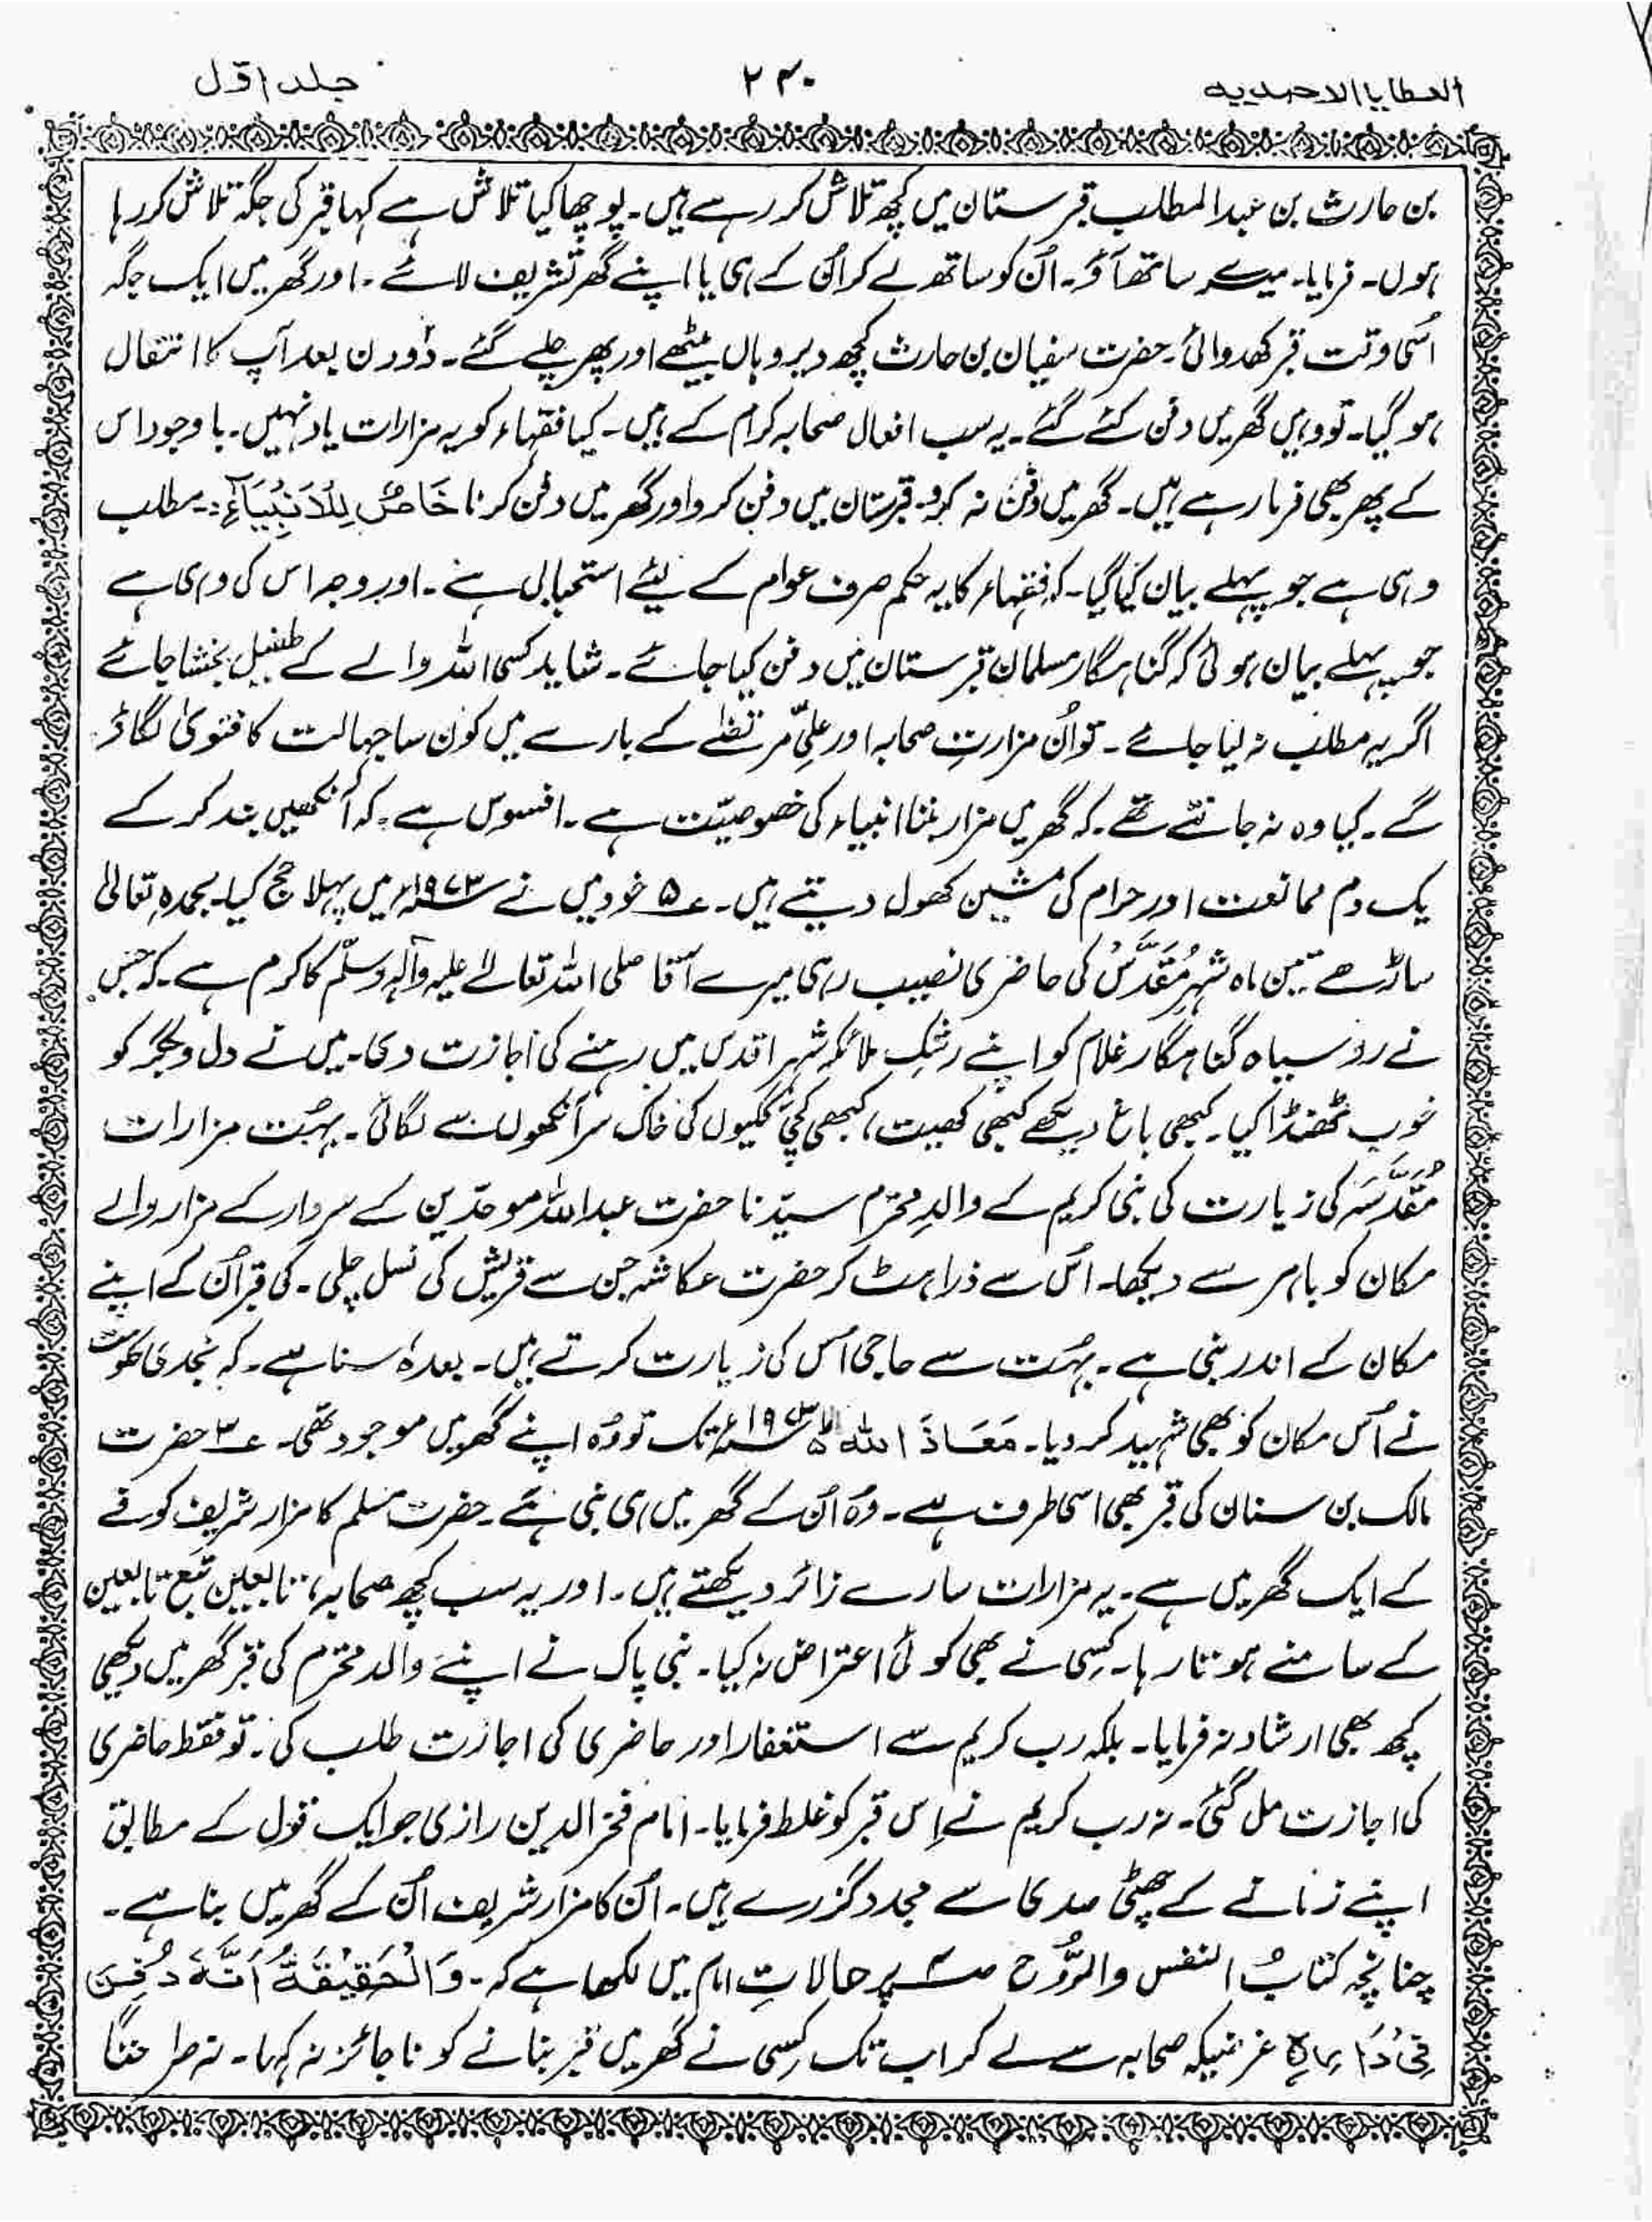 العطایا الاحمدیه
۲۳۰
جلد اوّل
بن حارث بن عبدالمطلب قبرستان میں کچھ تلاش کر رہے ہیں۔ پوچھا کیا تلاش ہے کہا قبر کی جگہ تلاش کر رہا
ہوں۔ فرمایا۔ میرے ساتھ آؤ۔ اُن کو ساتھ لے کر اُن کے ہی یا اپنے گھر تشریف لائے۔ اور گھر میں ایک جگہ
اُسی وقت قبر کھدوائی۔ حضرت سفیان بن حارث کچھ دیر وہاں بیٹھے اور پھر چلے گئے۔ دو دن بعد آپ کا انتقال
ہو گیا۔ تو وہیں گھر میں دفن کئے گئے۔ یہ سب افعال صحابہ کرام کے ہیں۔ کیا فقہاء کو یہ مزارات یاد نہیں۔ باوجود اس
کے پھر بھی فرما رہے ہیں۔ گھر میں دفن نہ کرو۔ قبرستان میں دفن کرو اور گھر میں دفن کرنا خَاصٌّ لِلْاَنْبِیَآءِ:۔ مطلب
وہی ہے جو پہلے بیان کیا گیا۔ کہ فقہاء کا یہ حکم صرف عوام کے لیئے استحبابی ہے۔ اور وجہ اس کی وہی ہے
جو پہلے بیان ہوئی کہ گناہگار مسلمان قبرستان میں دفن کیا جائے۔ شاید کسی اللہ والے کے طفیل بخشا جائے
اگر یہ مطلب نہ لیا جائے۔ تو اُن مزارتِ صحابہ اور علیِّ مرتضٰے کے بارے میں کون سا جہالت کا فتویٰ لگاؤ
گے۔ کیا وہ نہ جانتے تھے۔ کہ گھر میں مزار بننا انبیاء کی خصوصیّت ہے۔ افسوس ہے۔ کہ آنکھیں بند کر کے
یک دم ممانعت اور حرام کی مشین کھول دیتے ہیں۔ ع۵ خود میں نے ۱۹۷۳ء میں پہلا حج کیا۔ بحمدہٖ تعالیٰ
ساڑھے تین ماہ شہرِ مُقَدَّسْ کی حاضری نصیب رہی میرے آقا صلی اللہ تعالےٰ علیہ وآلہٖ وسلّم کا کرم ہے۔ کہ جس
نے رو سیاہ گناہگار غلام کو اپنے رشکِ ملائکہ شہر اقدس میں رہنے کی اجازت دی۔ میں نے دل و جگر کو
خوب ٹھنڈا کیا۔ کبھی باغ دیکھے کبھی کھیت، کبھی کچی گلیوں کی خاک سر آنکھوں سے لگائی۔ بہُت مزارات
مُقَدَّسَہ کی زیارت کی نبی کریم کے والدِ محترم سیّدنا حضرت عبداللہ موحّدین کے سردار کے مزار والے
مکان کو باہر سے دیکھا۔ اُس سے ذرا ہٹ کر حضرت عکاشہ جن سے قریش کی نسل چلی۔ کی قبر اُن کے اپنے
مکان کے اندر بنی ہے۔ بہُت سے حاجی اُس کی زیارت کرتے ہیں۔ بعدہٗ سنا ہے۔ کہ نجدی حکومت
نے اُس مکان کو بھی شہید کر دیا۔ مَعَاذَ اللہ تک تو وُہ اپنے گھر میں موجود تھی۔ ع۳ حضرت
مالک بن سنان کی قبر بھی اسی طرف ہے۔ وُہ اُن کے گھر میں ہی بنی ہے۔ حضرت مسلم کا مزار شریف کوفے
کے ایک گھر میں ہے۔ یہ مزارات سارے زائر دیکھتے ہیں۔ اور یہ سب کچھ صحابہ، تابعین تبع تابعین
کے سامنے ہوتا رہا۔ کسِی نے بھی کوئی اعتراض نہ کیا۔ نبی پاک نے اپنے والد محترم کی قبر گھر میں دیکھی
کچھ بھی ارشاد نہ فرمایا۔ بلکہ رب کریم سے استغفار اور حاضری کی اجازت طلب کی۔ تو فقط حاضری
کی اجازت مل گئی۔ نہ رب کریم نے اِس قبر کو غلط فرمایا۔ امام فخر الدین رازی جو ایک قول کے مطابق
اپنے زمانے کے چھٹی صدی سے مجدد گزرے ہیں۔ اُن کا مزار شریف اُن کے گھر میں بنا ہے۔
چنانچہ کتابُ النفس والرُّوح پر حالاتِ امام میں لکھا ہے کہ۔ وَالْحَقِیْقَۃُ اَنَّہٗ دُفِنَ
فِیْ دَارِہٖ غرضیکہ صحابہ سے لے کر اب تک کسِی نے گھر میں قبر بنانے کو ناجائز نہ کہا۔ نہ صراحتًا